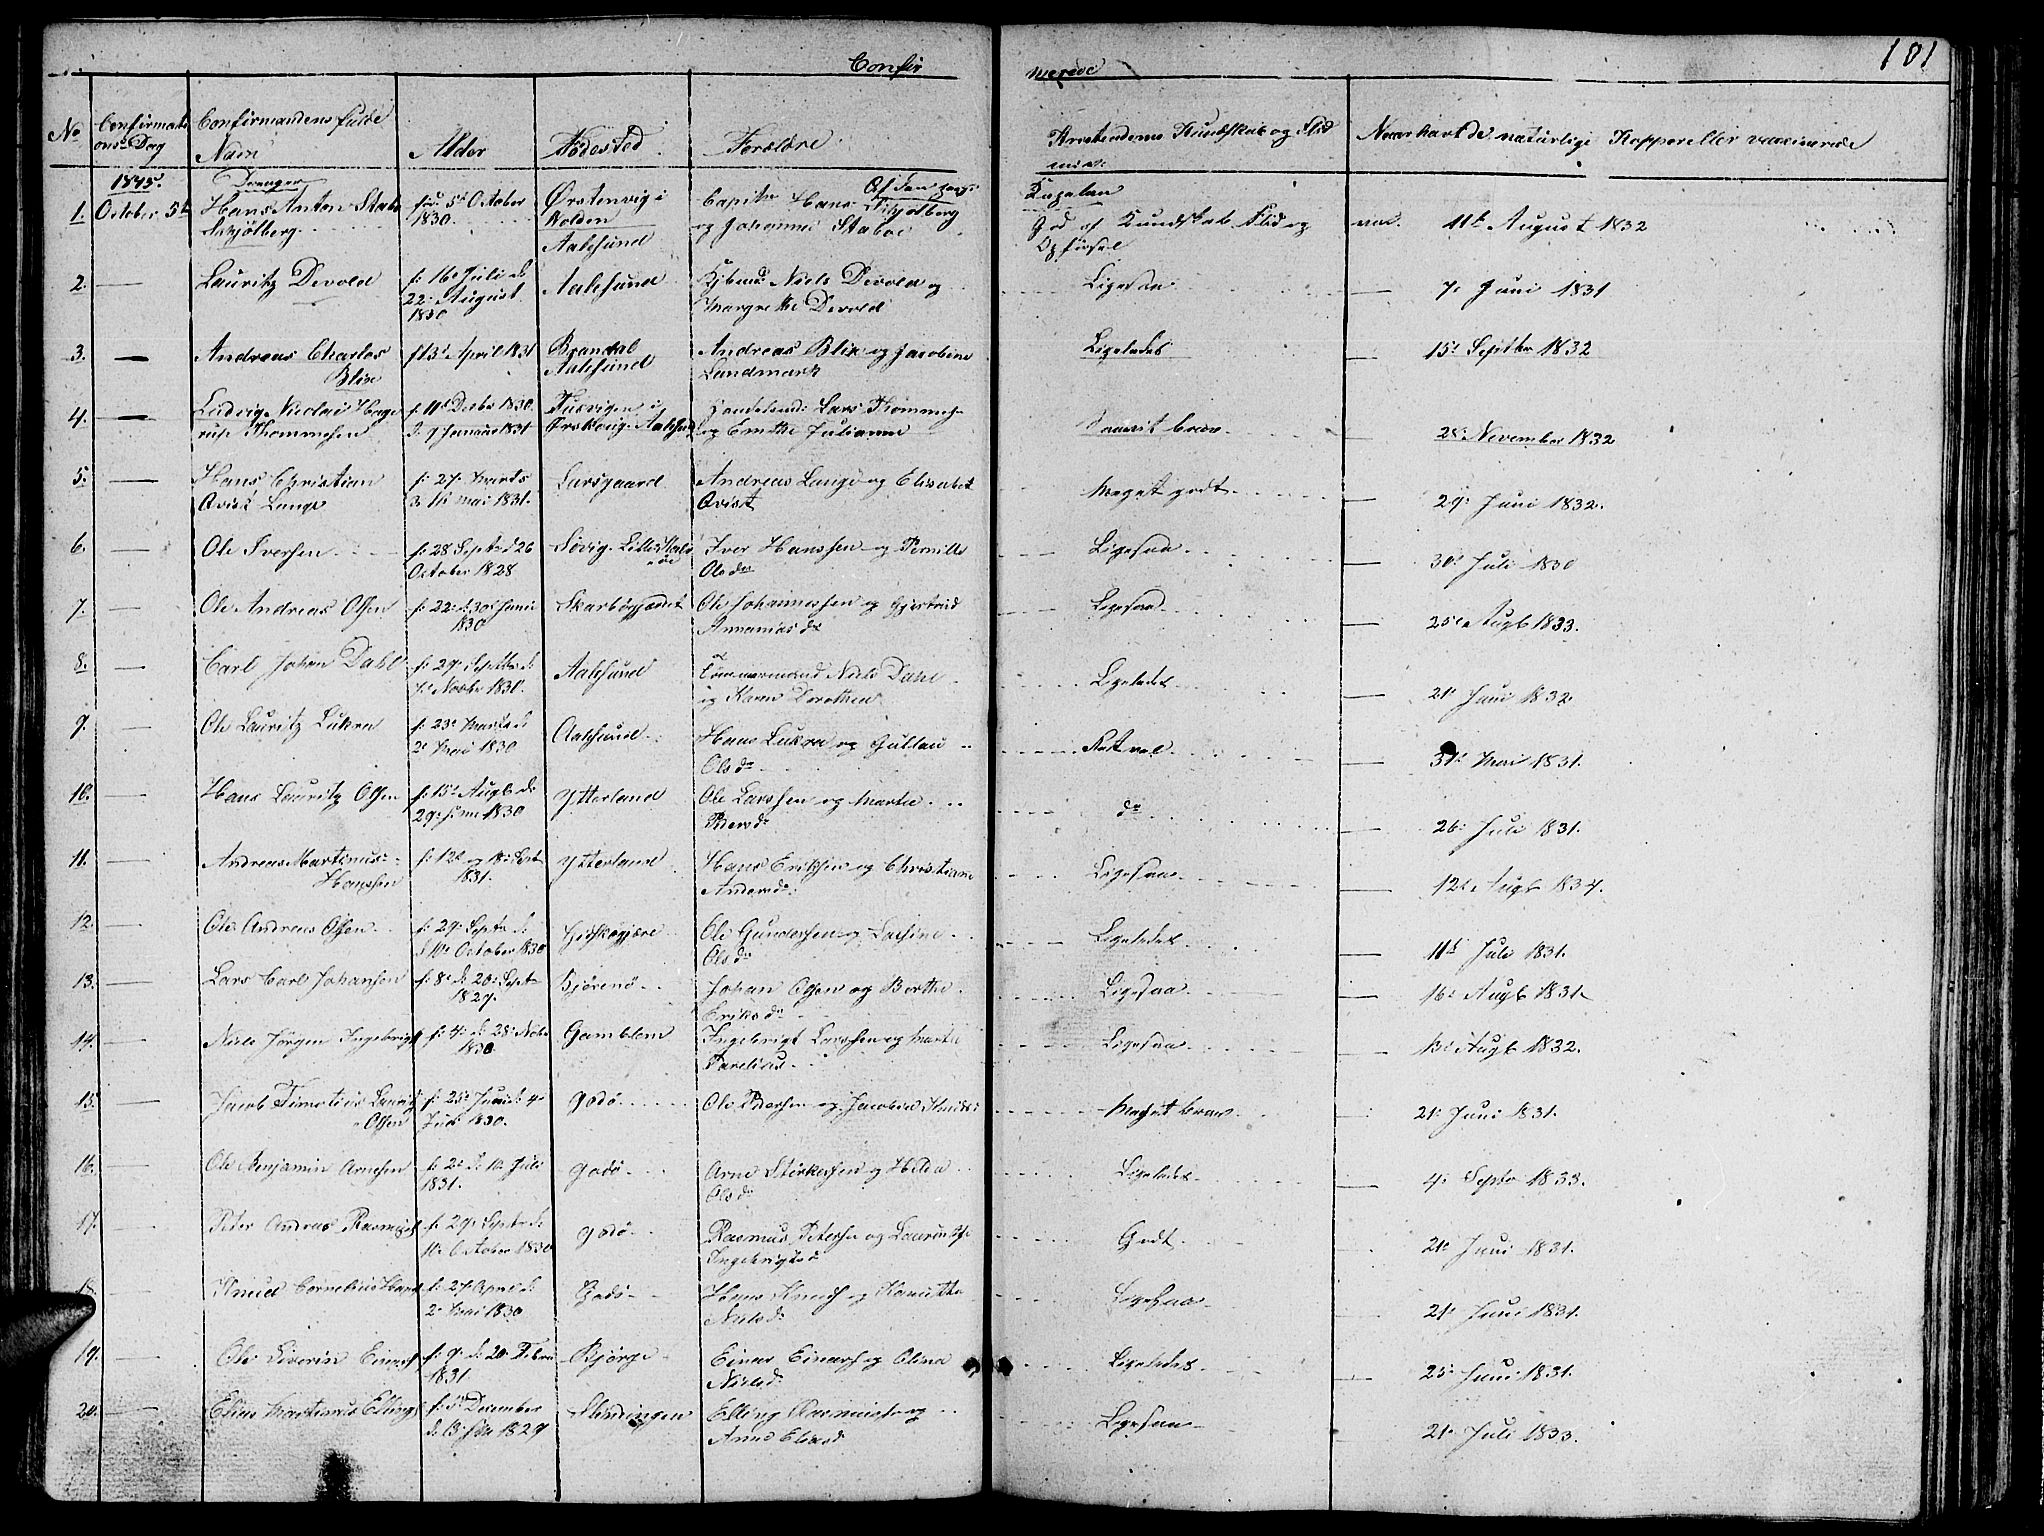 Confir merede
101
No
Confirmati ons Dag
Confirmandens fulde Navn
Alder
Fødested
Forældre
Kristendoms Kundskab og Flid
Naar havt de naturlige Kopper eller vaccinerede
1845.
Drenger
1. October 5te
Hans Anton Stabo
Skjølberg
5te October
1830.
Ørstenvig i
Volden
Aalesund
Capit Hans Skjølberg
og Johanne Staboe
God af Kundskab Flid og
Opførsel
vac. 11te August 1832
2. Lauritz Devold
f: 16de Juli d:
22: August
1830
Aalesund
Kjbmd Niels Devold og
Margrethe Devold
Ligesaa
7de Juni 1831
3. Andreas Charles
Blix
f 13de April 1831
Brandal
Aalesund
Andreas Blix og Jacobine
Landmark
Ligeledes
15de Septbr 1832
4. Ludvig Nicolai Hage
rup Thommesen
f: 11te Decbr 1830.
d: 9 Januar 1831
Ørskoug. Aalesund
Handelsmd: Lars Thommes
og Emtke Julianne
28: November 1832
5. Hans Christian
Qvist Lange
f: 27. Marts
1831.
Larsgaard
Andreas Lange og Elisabet
Qvist
Meget godt
29: Juni 1832.
6. Ole Iversen
f: 28 Septr d 26
October 1828
Iver Hanssen og Pernille
Olsdr
Ligesaa
30de Juli 1830
7. Ole Andreas Olsen
f: 22: d. 30: Juni
1830
Ole Johannessen og Gjertrud
Annaniasdr
Ligesaa
25de Augt 1833.
8. Carl Johan Dahl
f: 29: Septbr d:
Novbr 1830.
Aalesund
Tømmermand Niels Dahl
og Karen Dorothea
Ligeledes
21de Juni 1832
9. Ole Lauritz Lukra
f: 23de Marts d:
2de Mai 1830
Aalesund
Hans Lukra og Gullau
Olsdr
Ret vel
31te Mai 1831.
10. Hans Lauritz Olsen
f: 15de Augt d:
1830
Ytterland
Ole Larssen og Marte
Pedersdr
do
26: Juli 1831.
11. Andreas Martinus
Hanssen
f: 12te og 18de Sept
1831.
Ytterland
Hans Eriksen og Christiane
Andersdr
Ligesaa
12te Augt 1834.
12. Ole Andreas Olsen
f: 29: Septr d:
10de October 1830
Ole Gunderssen og
Olsdr
Ligeledes
11te Juli 1831.
13. Lars Carl Johansen
f: 8de d: 20: Septr
1829.
Bjørenø
Johan Olsen og Berthe
Eriksdr
Ligesaa
16: Augt 1831
14. Niels Jørgen Ingebrigts
f: 4: d: 28: Novbr
1830
Gamblem
Ingebrigt Larssen og Marte
Ligesaa
Augt 1832.
15. Jacob Timotius Lauritz
Olsen
f: 25de Juni d: 4de
Juli 1830.
Godø
Ole Pedersen og Jacobia Knudsd
Meget brav
21: Juni 1831.
16. Ole Benjamin Arnesen
f: 2de d: 10 Juli
1831.
Godø
Arne Sterkersen og Hilda
Olsdr
Ligeledes
4: Septr 1833.
17. Peter Andreas Rasmuss
f: 29: Septr d:
10: October 1830
Godø
Rasmus Petersen og
Ingebrigtsd
Godt
21: Juni 1831.
18. Knud Cornelius Hans
f: 27 April d:
2de Mai 1830
Godø
Hans Knuds og
Nielsd:
Ligesaa
21: Juni 1831.
19. Ole Siverin Einars
f: 9. d: 20 Febru
1831
Bjørge
Einar Einars og Olina
Nielsd:
Ligeledes
25: Juni 1831.
20. Elias Martinus Ellings
f: 5 December
1829
Slindingen
Elling Rasmuss og
Anne Eliasd
Ligesaa
21: Juli 1833.